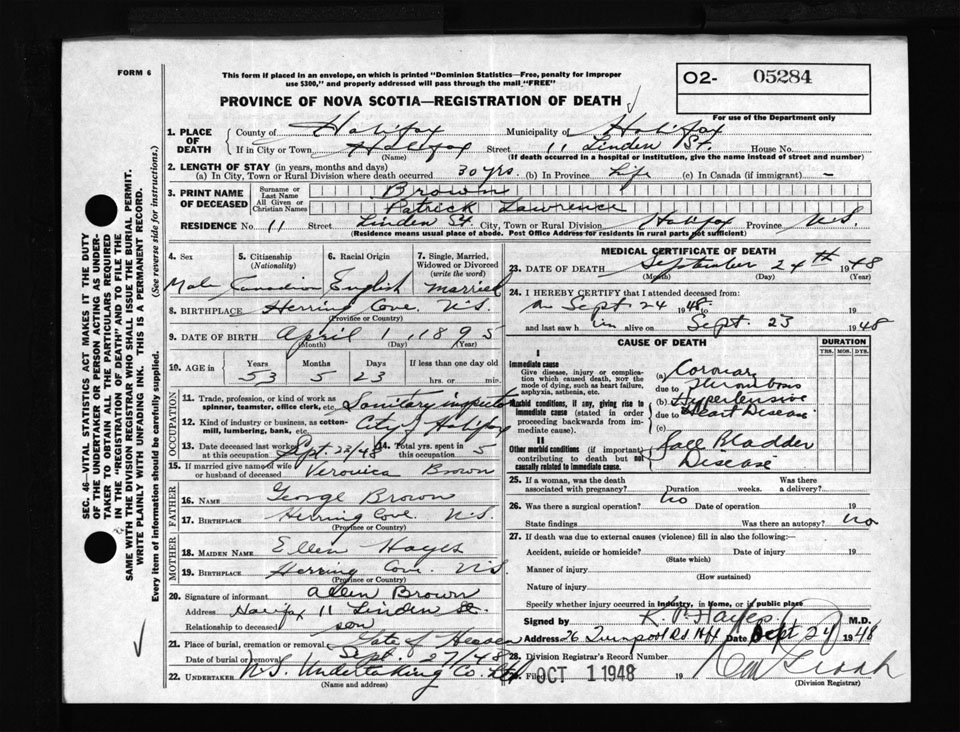 FORM 6
This form if placed in an envelope, on which is printed "Dominion Statistics—Free, penalty for improper
use $300," and properly addressed will pass through the mail "FREE"
O2- 05284
For use of the Department only
PROVINCE OF NOVA SCOTIA—REGISTRATION OF DEATH
1. PLACE OF DEATH
County of Halifax Municipality of Halifax
If in City or Town Halifax Street 11 Linden St. House No.
(Name) (If death occurred in a hospital or institution, give the name instead of street and number)
2. LENGTH OF STAY (in years, months and days)
(a) In City, Town or Rural Division where death occurred 30 yrs. (b) In Province Life (c) In Canada (if immigrant) —
3. PRINT NAME OF DECEASED
Surname or Last Name Brown
All Given or Christian Names Patrick Lawrence
RESIDENCE No. 11 Street Linden St. City, Town or Rural Division Halifax Province N.S.
(Residence means usual place of abode. Post Office Address for residents in rural parts not sufficient)
4. Sex 5. Citizenship (Nationality) 6. Racial Origin 7. Single, Married, Widowed or Divorced (write the word)
Male Canadian English married
8. BIRTHPLACE Herring Cove N.S.
(Province or Country)
9. DATE OF BIRTH April 1, 1895
(Month) (Day) (Year)
10. AGE in Years Months Days If less than one day old
53 5 23 hrs. or min.
OCCUPATION
11. Trade, profession, or kind of work as spinner, teamster, office clerk, etc. Sanitary inspector
12. Kind of industry or business, as cotton-mill, lumbering, bank, etc. City of Halifax
13. Date deceased last worked at this occupation Sept. 22/48 14. Total yrs. spent in this occupation 5
15. If married give name of wife or husband of deceased Veronica Brown
FATHER
16. NAME George Brown
17. BIRTHPLACE Herring Cove N.S.
(Province or Country)
MOTHER
18. MAIDEN NAME Ellen Hayes
19. BIRTHPLACE Herring Cove N.S.
(Province or Country)
20. Signature of informant Allen Brown
Address Halifax 11 Linden St.
Relationship to deceased son
21. Place of burial, cremation or removal Gate of Heaven
Date of burial or removal Sept. 27/48
22. UNDERTAKER N.S. Undertaking Co. Ltd
(Name and address)
MEDICAL CERTIFICATE OF DEATH
23. DATE OF DEATH September 24th 1948
(Month) (Day) (Year)
24. I HEREBY CERTIFY that I attended deceased from:
on Sept 24 1948 to 19
and last saw him alive on Sept. 23 1948
CAUSE OF DEATH DURATION
YRS. MOS. DYS.
I
Immediate cause
Give disease, injury or complication which caused death, not the mode of dying, such as heart failure, asphyxia, asthenia, etc.
(a) Coronary
due to thrombosis
Morbid conditions, if any, giving rise to immediate cause (stated in order proceeding backwards from immediate cause).
(b) Hypertensive
due to Heart Disease
(c)
II
Other morbid conditions (if important) contributing to death but not causally related to immediate cause.
Gall Bladder
Disease
25. If a woman, was the death associated with pregnancy? Duration weeks. Was there a delivery?
26. Was there a surgical operation? no Date of operation 19
State findings Was there an autopsy? no
27. If death was due to external causes (violence) fill in also the following:—
Accident, suicide or homicide? Date of injury 19
(State which)
Manner of injury
(How sustained)
Nature of injury
Specify whether injury occurred in industry, in home, or in public place
Signed by K. P. Hayes M.D.
Address 26 Hfx Date Sept 24 1948
28. Division Registrar's Record Number
Filed OCT 1 1948 19
(Division Registrar)
SEC. 46—VITAL STATISTICS ACT MAKES IT THE DUTY
OF THE UNDERTAKER OR PERSON ACTING AS UNDER-
TAKER TO OBTAIN ALL THE PARTICULARS REQUIRED
IN THE "REGISTRATION OF DEATH" AND TO FILE THE
SAME WITH THE DIVISION REGISTRAR WHO SHALL ISSUE THE BURIAL PERMIT.
WRITE PLAINLY WITH UNFADING INK. THIS IS A PERMANENT RECORD.
Every item of information should be carefully supplied. (See reverse side for instructions.)